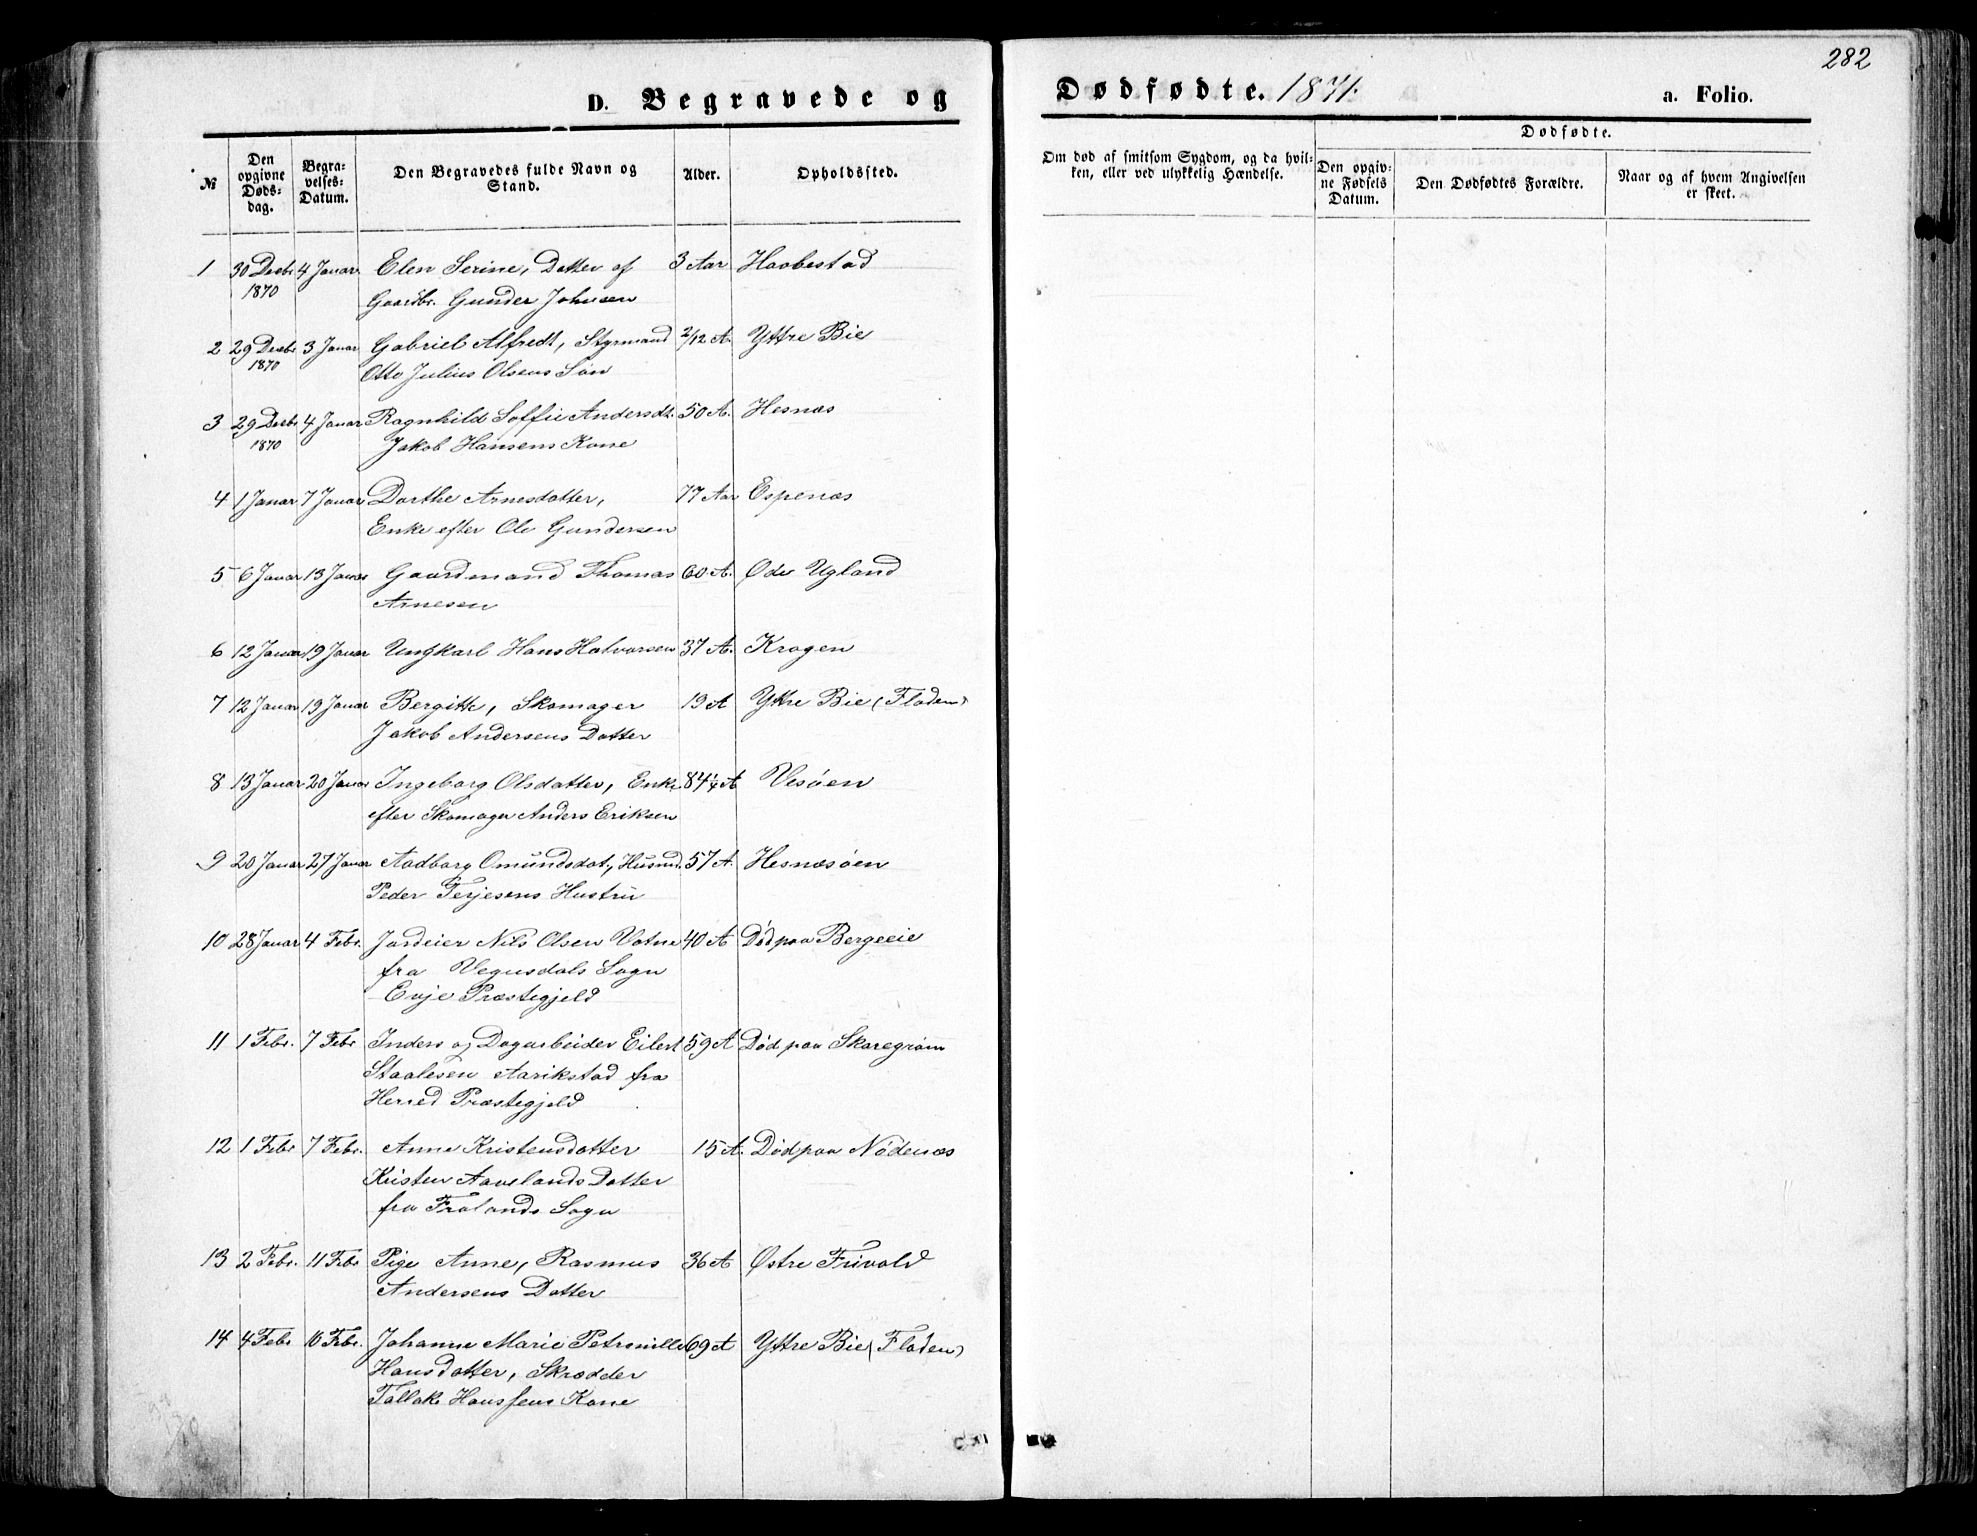 282
D. Begravede og Dødfødte. 1871. a. Folio.
№
Den opgivne Døds-dag.
Begra-velses-Datum.
Den Begravedes fulde Navn og Stand.
Alder.
Opholdssted.
Om død af smitsom Sygdom, og da hvil-ken, eller ved ulykkelig Hændelse.
Dødfødte.
Den opgiv-ne Fødsels Datum.
Den Dødfødtes Forældre.
Naar og af hvem Angivelsen er skeet.
1 30 Decbr 4 Januar Elen Serine, Datter af 3 Aar Haabestad
1870 Gaardbr. Gunder Johnsen
2 29 Decbr 3 Januar Gabriel Alfredt, Styrmand 2/12 A. Yttre Bie
1870 Otto Julius Olsens Søn
3 29 Decbr 4 Januar Ragnhild Soffie Andersdt. 50 A. Hesnæs
1870 Jakob Hansens Kone
4 1 Januar 7 Januar Dorthe Arnesdatter, 77 Aar Espenæs
Enke efter Ole Gundersen
5 6 Januar 13 Januar Gaardmand Thomas 60 A. Øde Ugland
Arnesen
6 12 Januar 19 Januar Ungkarl Hans Halvorsen 37 A. Krogen
7 12 Januar 19 Januar Bergitte, Skomager 19 A Yttre Bie (Floden)
Jakob Andersens Datter
8 13 Januar 20 Januar Ingeborg Olsdatter, Enke 84 1/4 A Vesøen
efter Skomager Anders Eriksen
9 20 Januar 27 Januar Aadborg Omundsdat, Husmd. 57 A. Hesnæsøen
Peder Terjesens Hustru
10 28 Januar 4 Febr. Jordeier Nils Olsen Vatne 40 A Død paa Bergeeie
fra Vegusdals Sogn
Evje Præstegjeld
11 1 Febr. 7 Febr Inders og Dagarbeider Eilert 59 A Død paa Skaregrøm
Staalesen Aarikstad fra
Herred Præstegjeld
12 1 Febr 7 Febr. Anne Kristensdatter 15 A. Død paa Nødenæs
Kristen Aavelands Datter
fra Frolands Sogn
13 2 Febr. 11 Febr Pige Anne, Rasmus 36 A Østre Frivold
Andersens Datter
14 4 Febr 10 Febr. Johanne Marie Petronille 69 A Yttre Bie (Floden)
Hansdatter, Skrædder
Tallak Hanssens Kone